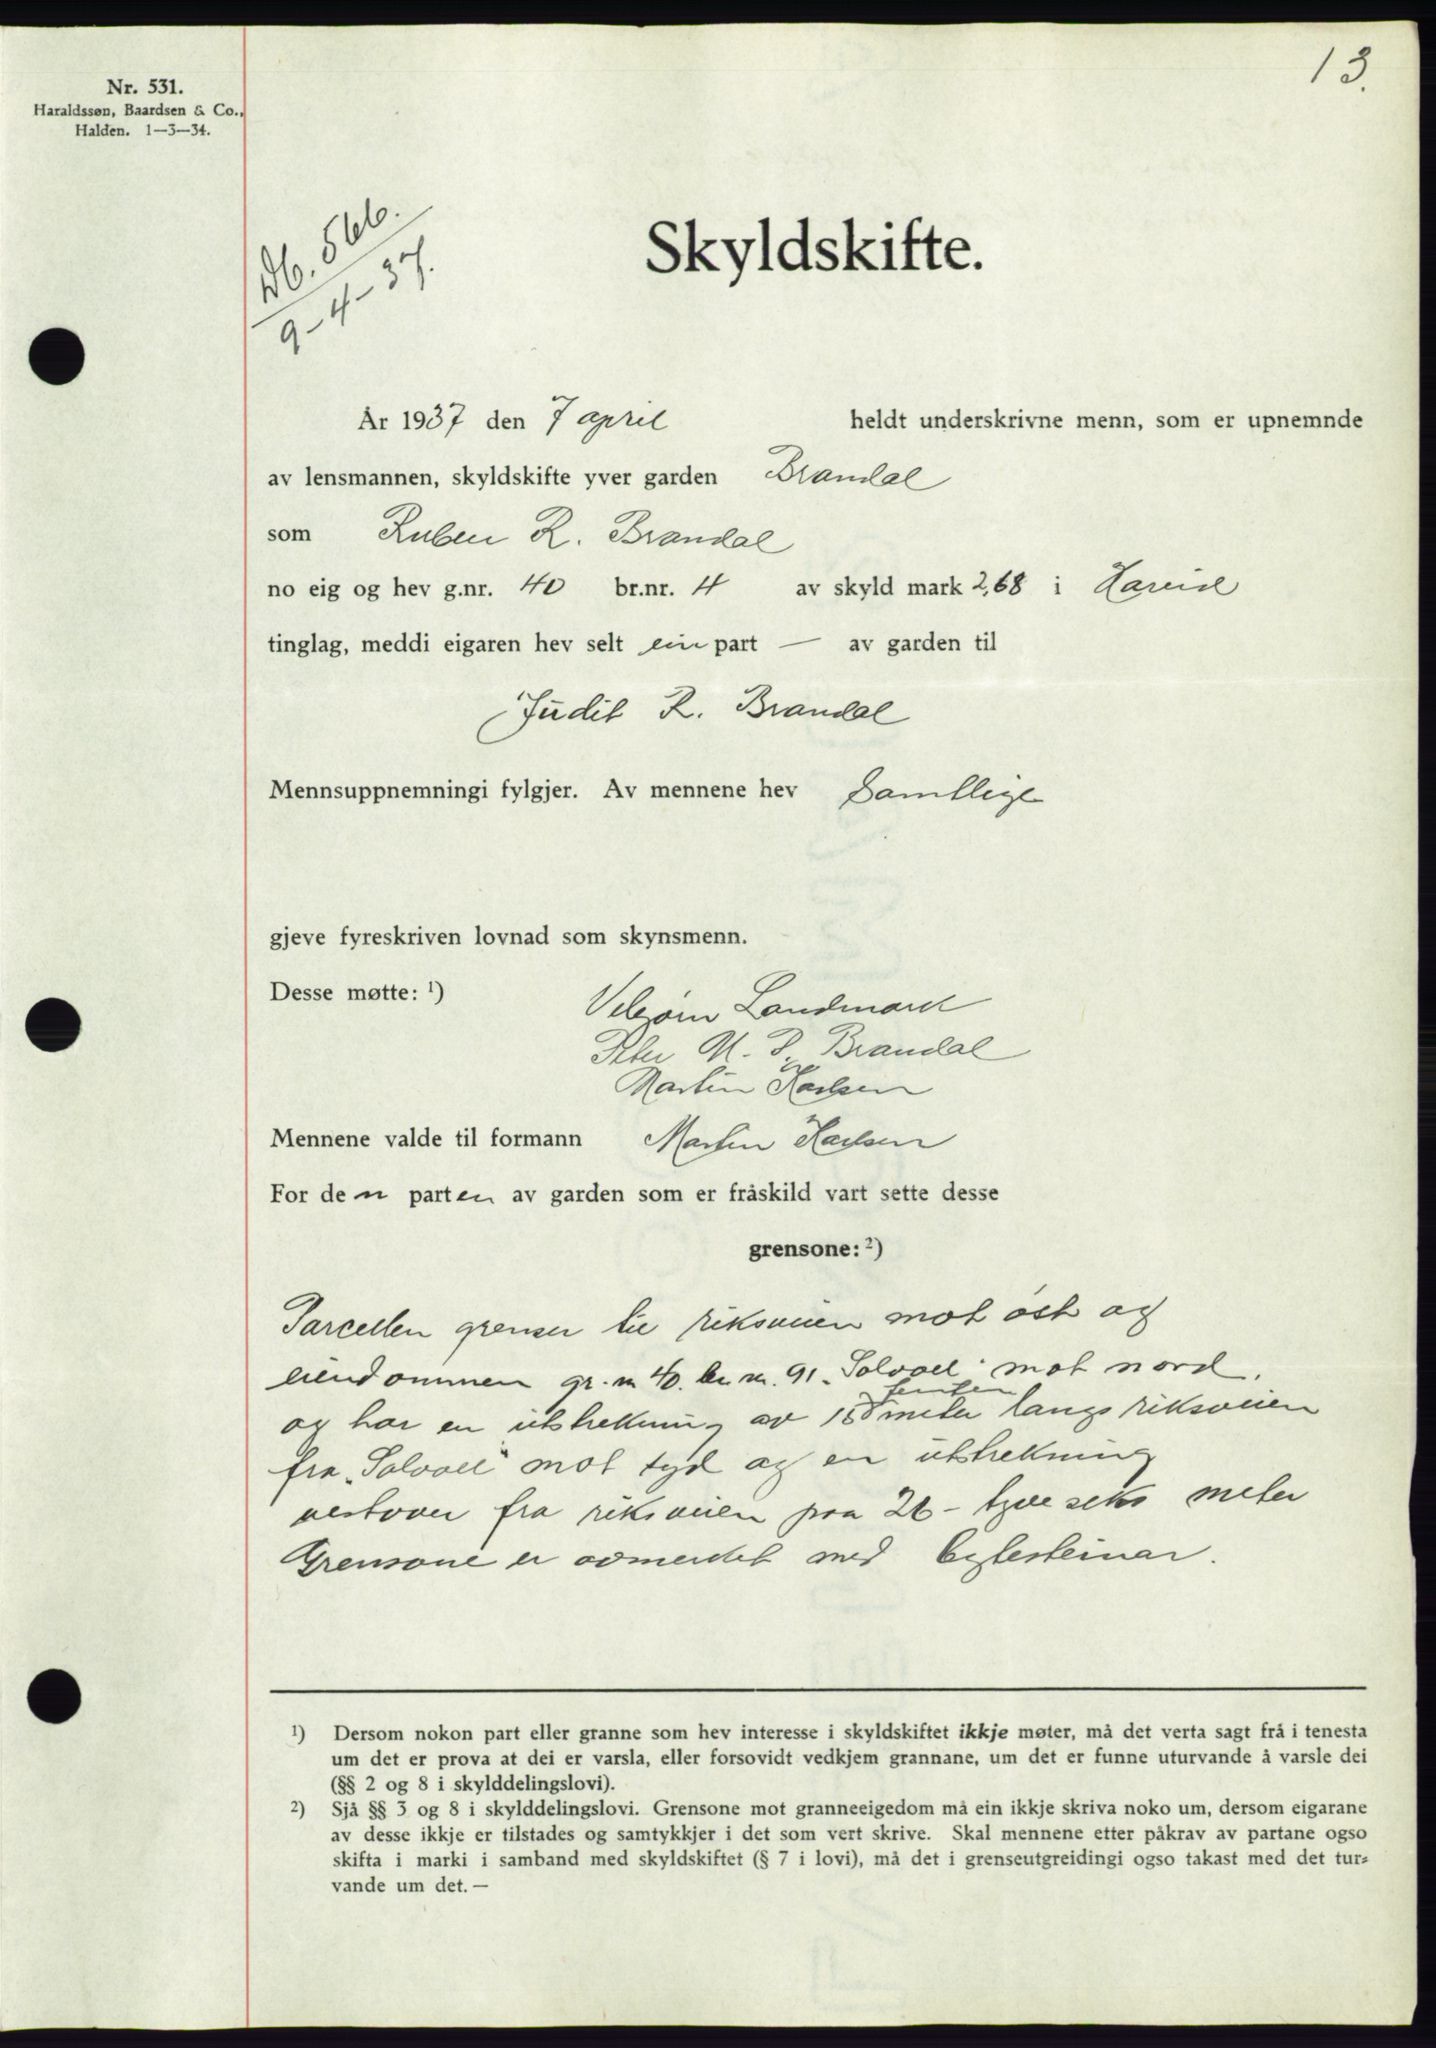 13.
Nr. 531.
Haraldssøn, Baardsen & Co.,
Halden. 1—3—34.
Db. 566.
9-4-37.
Skyldskifte.
År 1937 den 7 april heldt underskrivne menn, som er upnemnde
av lensmannen, skyldskifte yver garden Brandal
som Ruben R. Brandal
no eig og hev g.nr. 40 br.nr. 4 av skyld mark 2,68 i Hareid
tinglag, meddi eigaren hev selt ein part — av garden til
Judit R. Brandal
Mennsuppnemningi fylgjer. Av mennene hev Samtlige
gjeve fyreskriven lovnad som skynsmenn.
Desse møtte: ¹) Landmark
Peter M. P. Brandal
Martin Karlsen
Mennene valde til formann Martin Karlsen
For den parten av garden som er fråskild vart sette desse
grensone: ²)
Parcellen grenser til riksveien mot øst og
eiendommen gr. n 40. br. n. 91. "Solvoll" mot nord.
femten
og har en utstrekning av 15 meter langs riksveien
fra "Solvoll" mot syd og en utstrekning
vestover fra riksveien paa 26 - tyve seks meter
Grensone er avmerket med bytesteinar.
¹) Dersom nokon part eller granne som hev interesse i skyldskiftet ikkje møter, må det verta sagt frå i tenesta
um det er prova at dei er varsla, eller forsovidt vedkjem grannane, um det er funne uturvande å varsle dei
(§§ 2 og 8 i skylddelingslovi).
²) Sjå §§ 3 og 8 i skylddelingslovi. Grensone mot granneeigedom må ein ikkje skriva noko um, dersom eigarane
av desse ikkje er tilstades og samtykkjer i det som vert skrive. Skal mennene etter påkrav av partane ogso
skifta i marki i samband med skyldskiftet (§ 7 i lovi), må det i grenseutgreidingi ogso takast med det tur-
vande um det. —